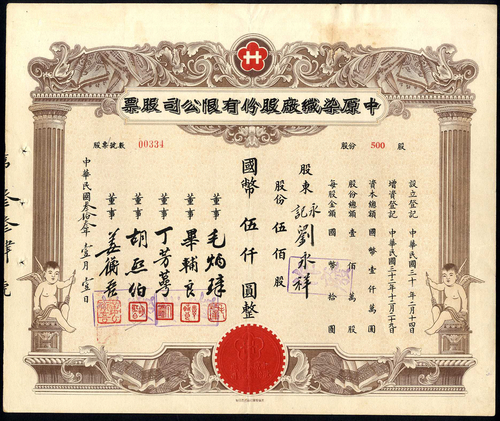 中原染織廠股份有限公司股票
股票號數 00334
股份 500 股
設立登記 中華民國三十年二月十四日
增資登記 中華民國三十二年十二月二十九日
資本總額 國幣壹仟萬圓
股份總額 壹佰萬股
每股金額 國幣拾圓
股東 永記 劉永祥
股份 伍佰股
國幣 伍仟圓整
董事 毛炳璋
董事 畢輔良
董事 丁芳蕚
董事 胡亞伯
董事
中華民國叁拾叁年壹月壹日